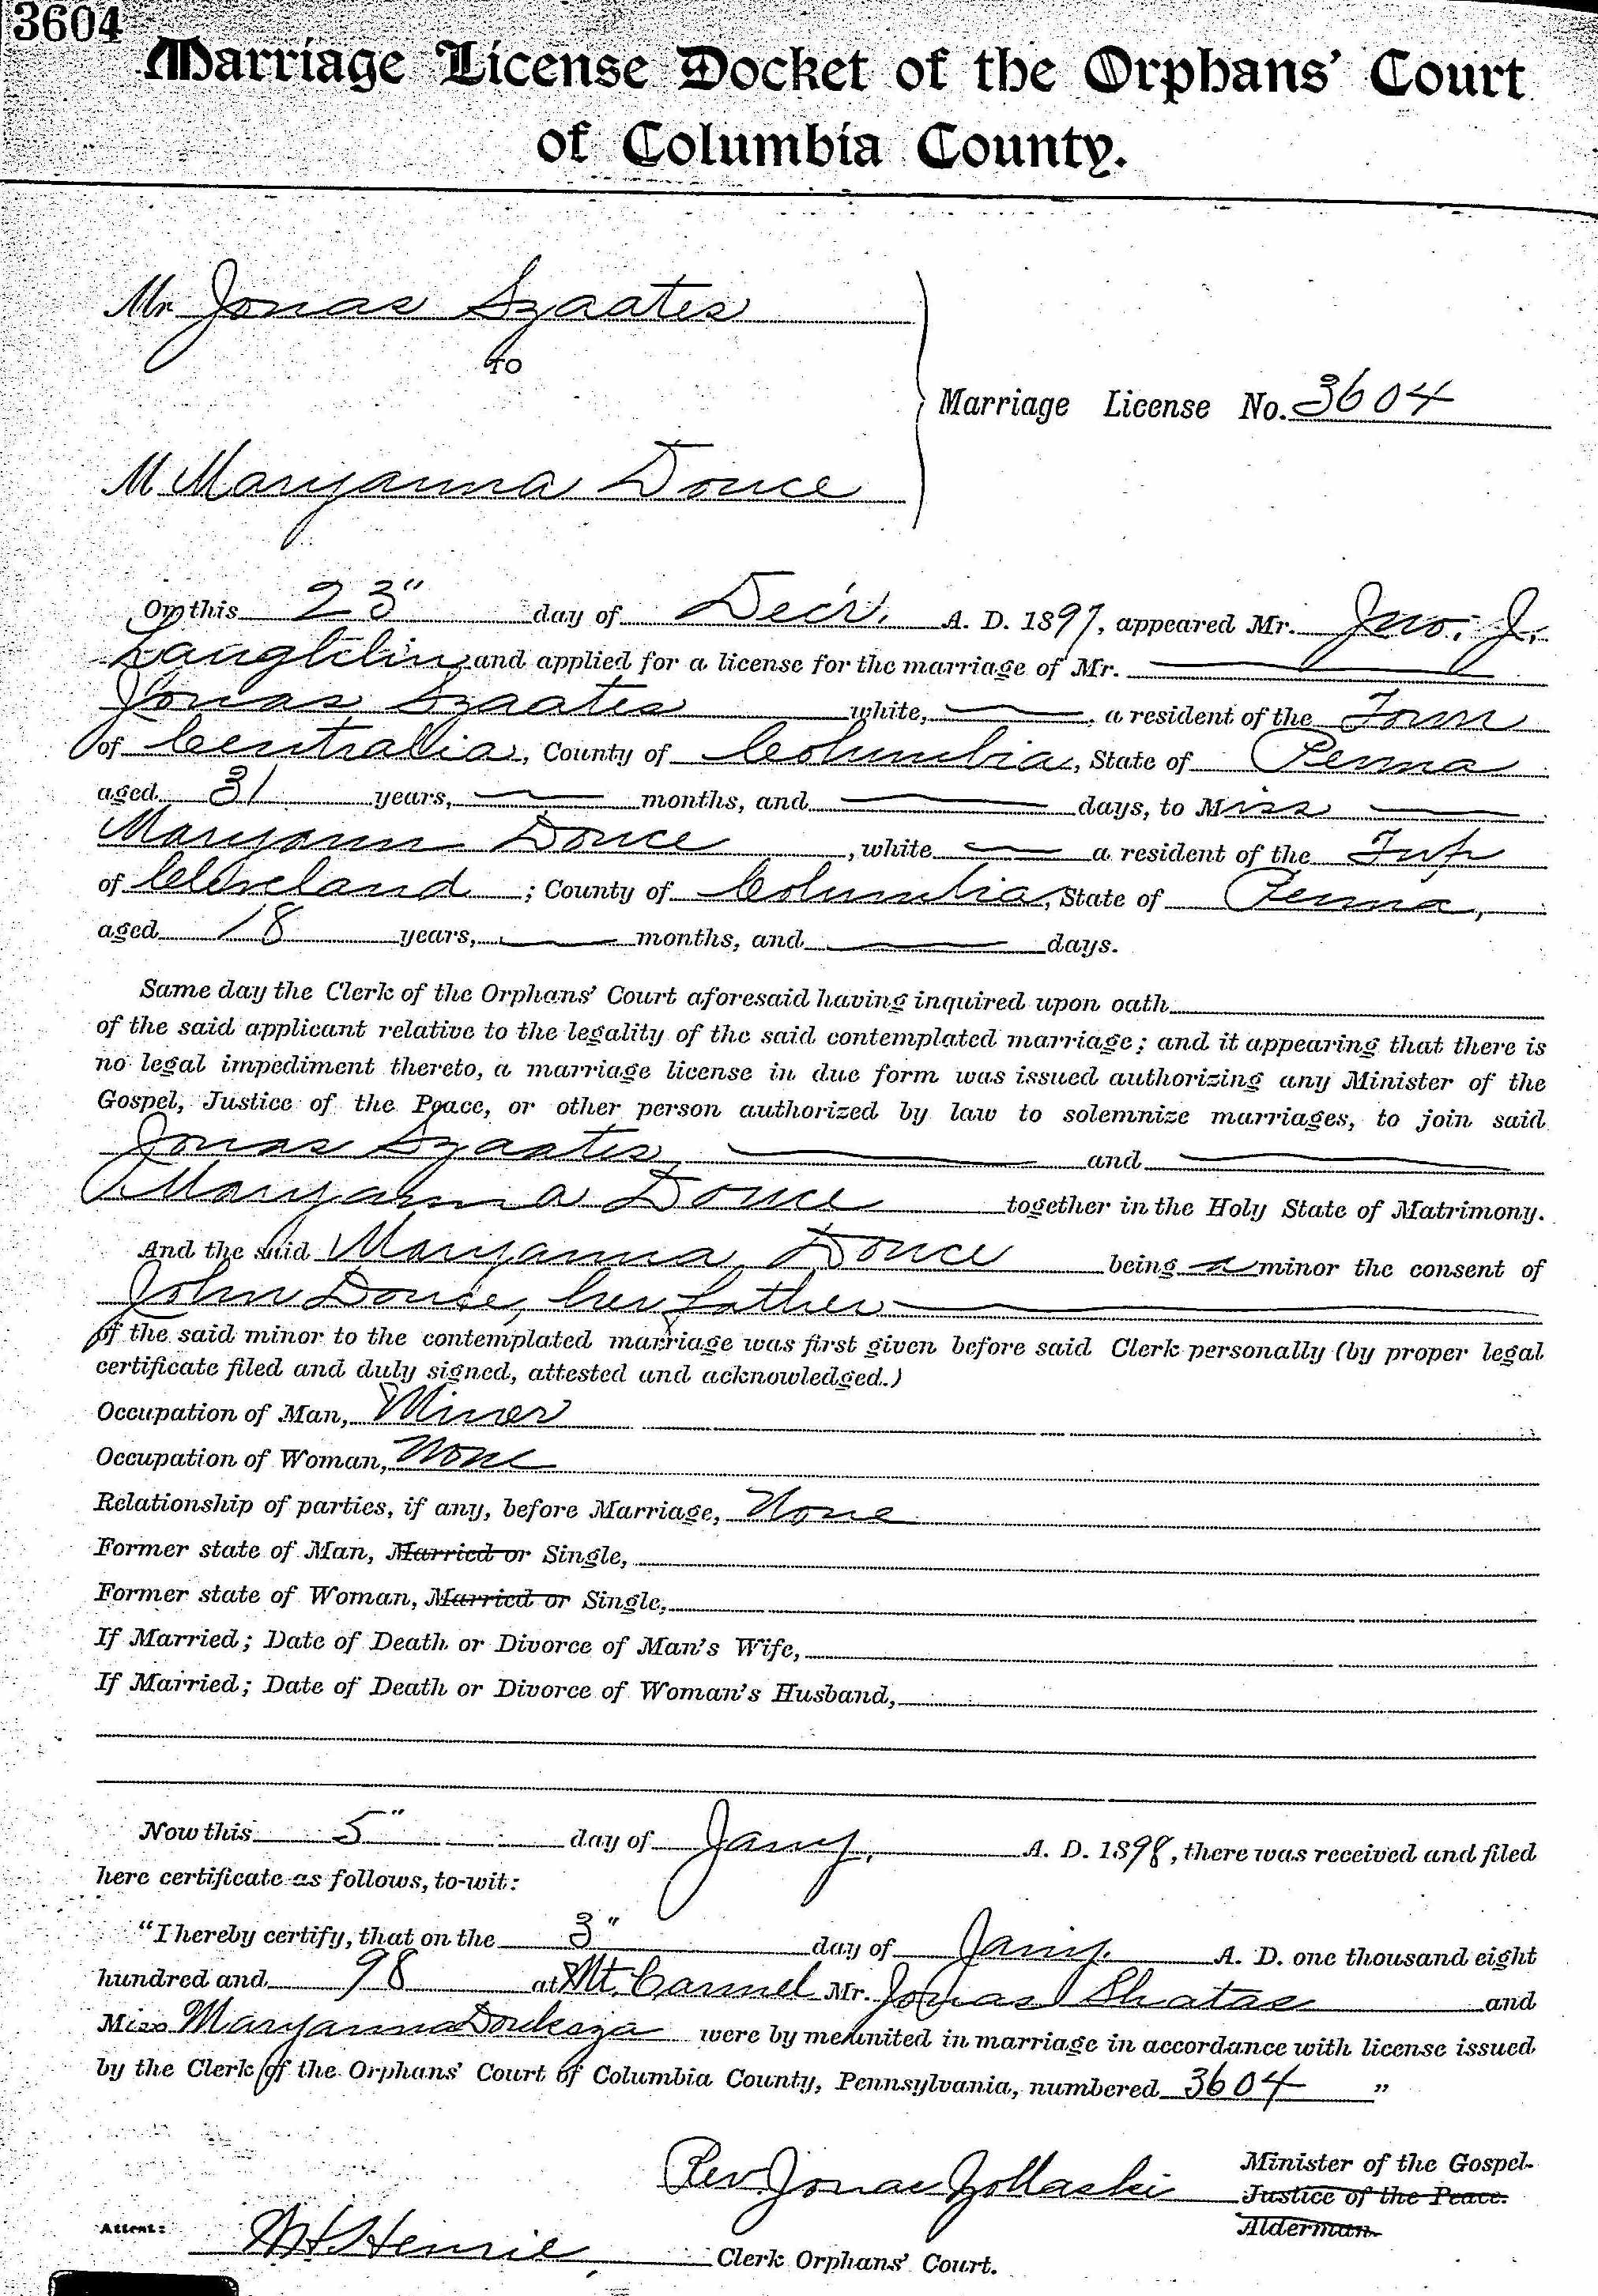 3604
Marriage License Docket of the Orphans' Court
of Columbia County.
Mr Jonas Szaates
to
Marriage License No. 3604
M Maryanna Douce
On this 23" day of Dec'r. A. D. 1897, appeared Mr. Jno. J.
Laughlin and applied for a license for the marriage of Mr.
Jonas Szaates white, a resident of the Town
of Centralia, County of Columbia, State of Penna
aged 31 years, months, and days, to Miss
Maryann Douce, white a resident of the Twp
of Cleveland; County of Columbia, State of Penna,
aged 18 years, months, and days.
Same day the Clerk of the Orphans' Court aforesaid having inquired upon oath
of the said applicant relative to the legality of the said contemplated marriage; and it appearing that there is
no legal impediment thereto, a marriage license in due form was issued authorizing any Minister of the
Gospel, Justice of the Peace, or other person authorized by law to solemnize marriages, to join said
Jonas Szaates and
Maryanna Douce together in the Holy State of Matrimony.
And the said Maryanna Douce being a minor the consent of
John Douce, her father
of the said minor to the contemplated marriage was first given before said Clerk personally (by proper legal
certificate filed and duly signed, attested and acknowledged.)
Occupation of Man, Miner
Occupation of Woman, None
Relationship of parties, if any, before Marriage, None
Former state of Man, Married or Single,
Former state of Woman, Married or Single,
If Married; Date of Death or Divorce of Man's Wife,
If Married; Date of Death or Divorce of Woman's Husband,
Now this 5" day of Jany. A. D. 1898, there was received and filed
here certificate as follows, to-wit:
"I hereby certify, that on the 3" day of Jany. A. D. one thousand eight
hundred and 98 at Mt. Carmel Mr. Jonas Shatas and
Miss Maryanna Douksza were by me united in marriage in accordance with license issued
by the Clerk of the Orphans' Court of Columbia County, Pennsylvania, numbered 3604 "
Rev Jonas Zollaski Minister of the Gospel.
Justice of the Peace.
Alderman.
Attest: Henrie Clerk Orphans' Court.